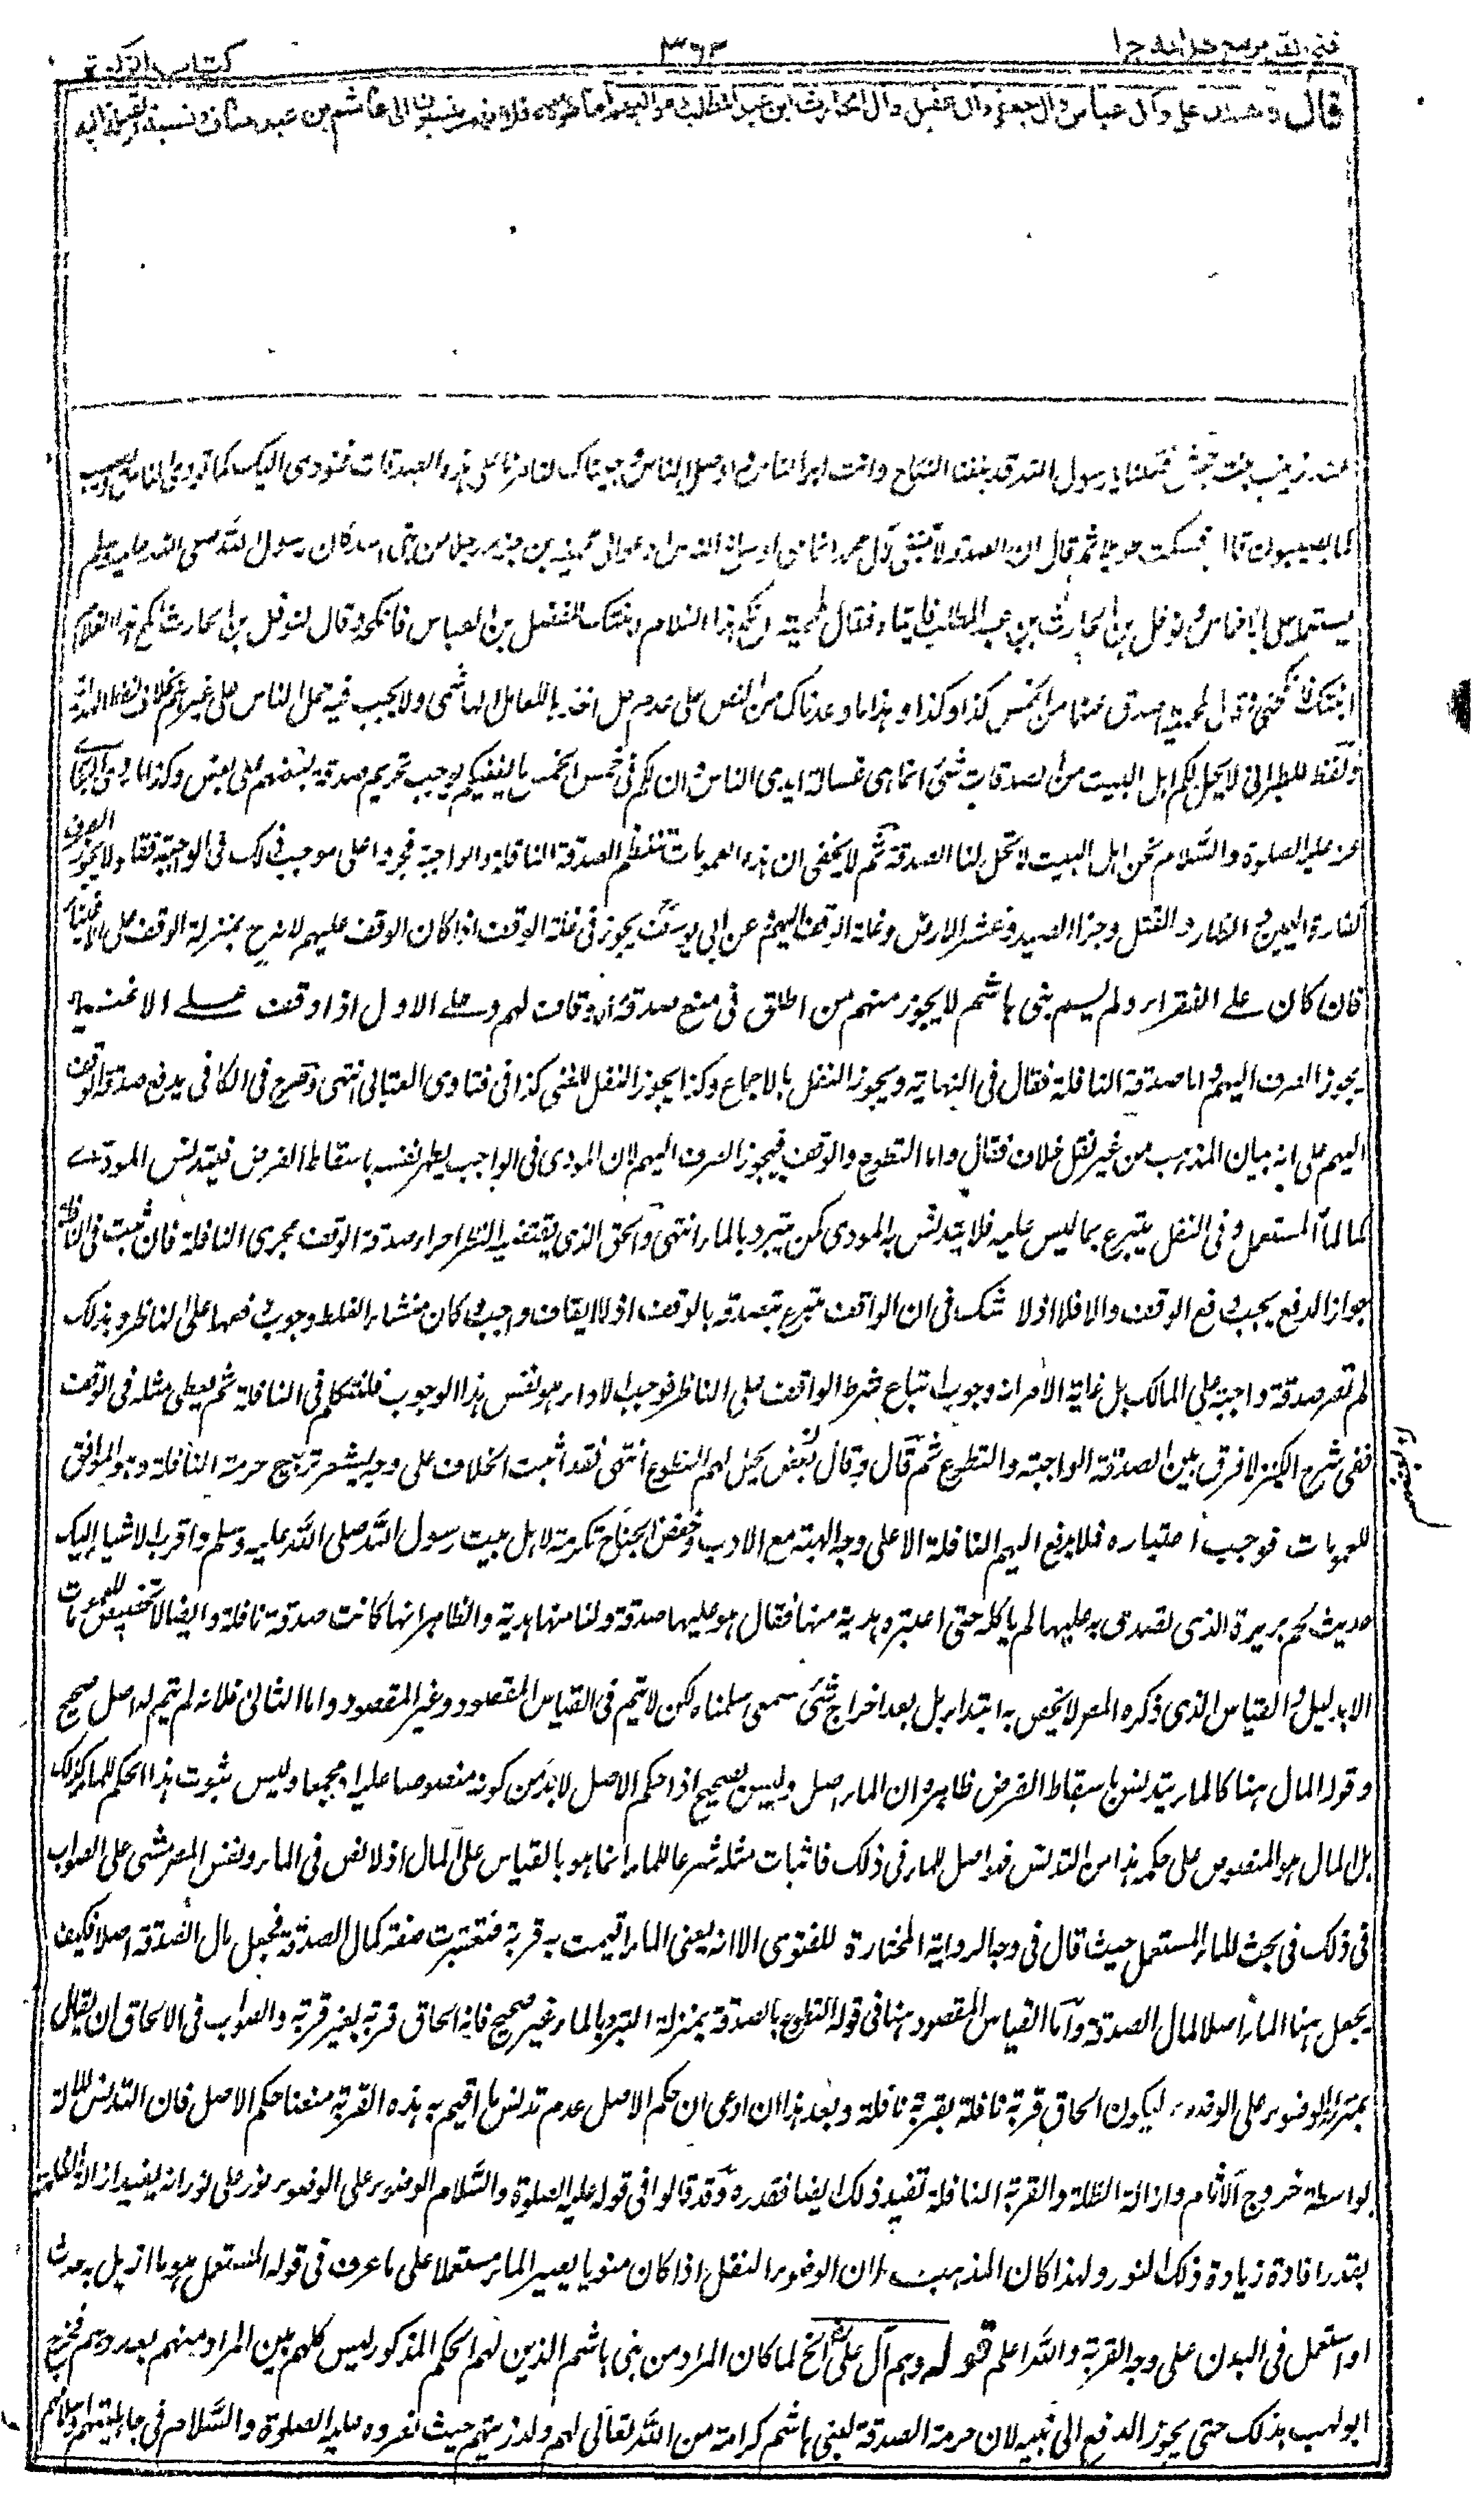 فتح القدير مع هداية ج ١
٣٦٣
كتاب الزكوة
قال وهم آل علي وآل عباس وآل جعفر وآل عقيل وآل الحارث ابن عبد المطلب ومواليهم اما هؤلاء فلانهم ينسبون الى هاشم بن عبد مناف ونسبة القبيلة اليه
عند زينب بنت جحش فقلنا يا رسول الله قد بلغنا النكاح وانت ابر الناس واوصل الناس وجئناك لتؤمرنا على هذه الصدقات فنؤدى اليك كما تودى الناس ونصيب
كما يصيبون قال فسكت طويلا ثم قال ان الصدقة لا تنبغى لآل محمد انما هى اوساخ الناس ادعوا لى محمية بن جزء رجلا من بنى اسد كان رسول الله صلى الله عليه وسلم
يستعمله على الاخماس ونوفل بن الحارث بن عبد المطلب فاتياه فقال لمحمية انكح هذا الغلام ابنتك للفضل بن العباس فانكحه وقال لنوفل بن الحارث انكح هذا الغلام
ابنتك فانكحنى وقال لمحمية اصدق عنهما من الخمس كذا وكذا وهذا ما وعدناك من النص على عدم حل اخذها للعامل الهاشمى ولا يجب فيه حمل الناس على غيرهم بخلاف لفظ الهداية
ولفظ للطبرانى لا يحل لكم اهل البيت من الصدقات شئ انما هى غسالة ايدى الناس وان لكم فى خمس الخمس ما يغنيكم يوجب تحريم صدقة بعضهم على بعض وكذا ما روى البخارى
عنه عليه الصلوة والسلام نحن اهل البيت لا تحل لنا الصدقة ثم لا يخفى ان هذه العمومات تنتظم الصدقة النافلة والواجبة فجروا على موجب ذلك فى الواجبة فقالوا لا يجوز الصرف
كفارة اليمين والظهار والقتل وجزاء الصيد وعشر الارض وغلة الوقف اليهم وعن ابى يوسف يجوز فى غلة الوقف اذا كان الوقف عليهم لانه ح بمنزلة الوقف على الاغنياء
فان كان على الفقراء ولم يسم بنى هاشم لا يجوز ومنهم من اطلق فى منع صدقة الاوقاف لهم وعلى الاول اذا وقف على الاغنياء
يجوز الصرف اليهم واما صدقة النافلة فقال فى النهاية ويجوز النفل بالاجماع وكذا يجوز النفل للغنى كذا فى فتاوى العتابى انتهى وصرح فى الكافى بدفع صدقة الوقف
اليهم على انه بيان المذهب من غير نقل خلاف فقال واما التطوع والوقف فيجوز الصرف اليهم لان المودى فى الواجب يطهر نفسه باسقاط الفرض فيتدنس المودى
كالماء المستعمل وفى النفل يتبرع بما ليس عليه فلا يتدنس به المودى كمن يتبرد بالماء انتهى والحق الذى يقتضيه النظر اجراء صدقة الوقف مجرى النافلة فان ثبت فى النافلة
جواز الدفع يجب دفع الوقف والا فلا اذ لا شك فى ان الواقف متبرع بتصدقه بالوقف اذ لا ايقاف واجب وكان منشاء الغلط وجوب دفعها على الناظر وبذلك
لم تصر صدقة واجبة على المالك بل غاية الامر انه وجوب اتباع شرط الواقف على الناظر فوجب الاداء هو نفس هذا الوجوب فلنتكلم فى النافلة ثم يعطى مثله فى الوقف
ففى شرح الكنز لا فرق بين الصدقة الواجبة والتطوع ثم قال وقال بعض يحل لهم التطوع انتهى فقد اثبت الخلاف على وجه يشعر بترجيح حرمة النافلة وهو الموافق
للعمومات فوجب اعتباره فلا يدفع اليهم النافلة الا على وجه الهبة مع الادب وخفض الجناح تكرمة لاهل بيت رسول الله صلى الله عليه وسلم واقرب الاشياء اليك
حديث لحم بريرة الذى تصدق به عليها لم ياكله حتى اعتبره هدية منها فقال هو عليها صدقة ولنا منها هدية والظاهر انها كانت صدقة نافلة وايضا لا تخصيص للعمومات
الا بدليل والقياس الذى ذكره المصر لا يخص به ابتداء بل بعد اخراج شئ سمعى سلمناه لكن لا يتم فى القياس المقصود وغير المقصود واما الثانى فلانه لم يتم له اصل صحيح
وقوله المال هنا كالماء يتدنس باسقاط الفرض ظاهره ان الماء اصل وليس بصحيح اذ حكم الاصل لا بد من كونه منصوصا عليه او مجمعا وليس ثبوت هذا الحكم للماء كذلك
بل المال هو المنصوص على حكمه هذا من التدنس فهو اصل للماء فى ذلك فاثبات مثله شرعا للماء انما هو بالقياس على المال اذ لا نص فى الماء ونفس المصر مشى على الصواب
فى ذلك فى بحث الماء المستعمل حيث قال فى وجه الرواية المختارة للفتوى الا انه يعنى الماء اقيمت به قربة فتغيرت صفته كمال الصدقة فجعل مال الصدقة اصلا فكيف
يجعل هنا الماء اصلا لمال الصدقة واما القياس المقصود هنا فى قوله التطوع بالصدقة بمنزلة التبرد بالماء غير صحيح فانه الحاق قربة بغير قربة والصواب فى الالحاق ان يقال
بمنزلة الوضوء على الوضوء ليكون الحاق قربة نافلة بقربة نافلة وبعد هذا ان ادعى ان حكم الاصل عدم تدنس ما اقيم به هذه القربة منعنا حكم الاصل فان التدنس للآلة
بواسطة خروج الآثام وازالة الظلمة والقربة النافلة تفيد ذلك ايضا فقدره وقد قالوا فى قوله عليه الصلوة والسلام الوضوء على الوضوء نور على نور انه يفيد ازالة الظلمة
بقدر افادة زيادة ذلك النور ولهذا كان المذهب ان الوضوء النفل اذا كان منويا يصير الماء مستعملا على ما عرف فى قوله المستعمل هو ما ازيل به حدث
او استعمل فى البدن على وجه القربة والله اعلم قوله وهم آل على الخ لما كان المراد من بنى هاشم الذين لهم الحكم المذكور ليس كلهم بين المراد منهم بعددهم فخرج
ابو لهب بذلك حتى يجوز الدفع الى بنيه لان حرمة الصدقة لبنى هاشم كرامة من الله تعالى لهم ولذريتهم حيث نصروه عليه الصلوة والسلام فى جاهليتهم واسلامهم